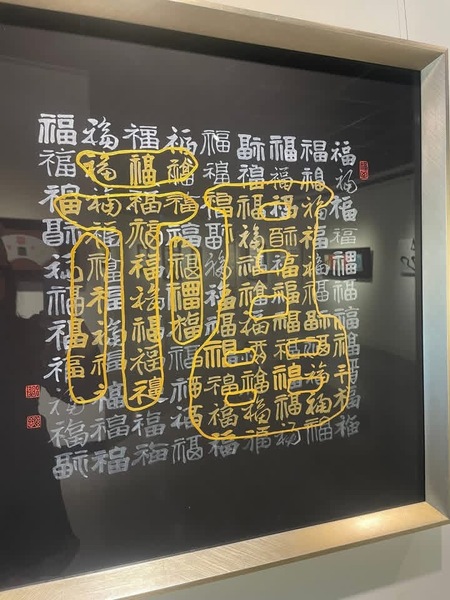 福
福福福福福福福福福福福
福福福福福福福福福福福
福福福福福福福福福福福
福福福福福福福福福福福
福福福福福福福福福福福
福福福福福福福福福福福
福福福福福福福福福福福
福福福福福福福福福福福
福福福福福福福福福福福